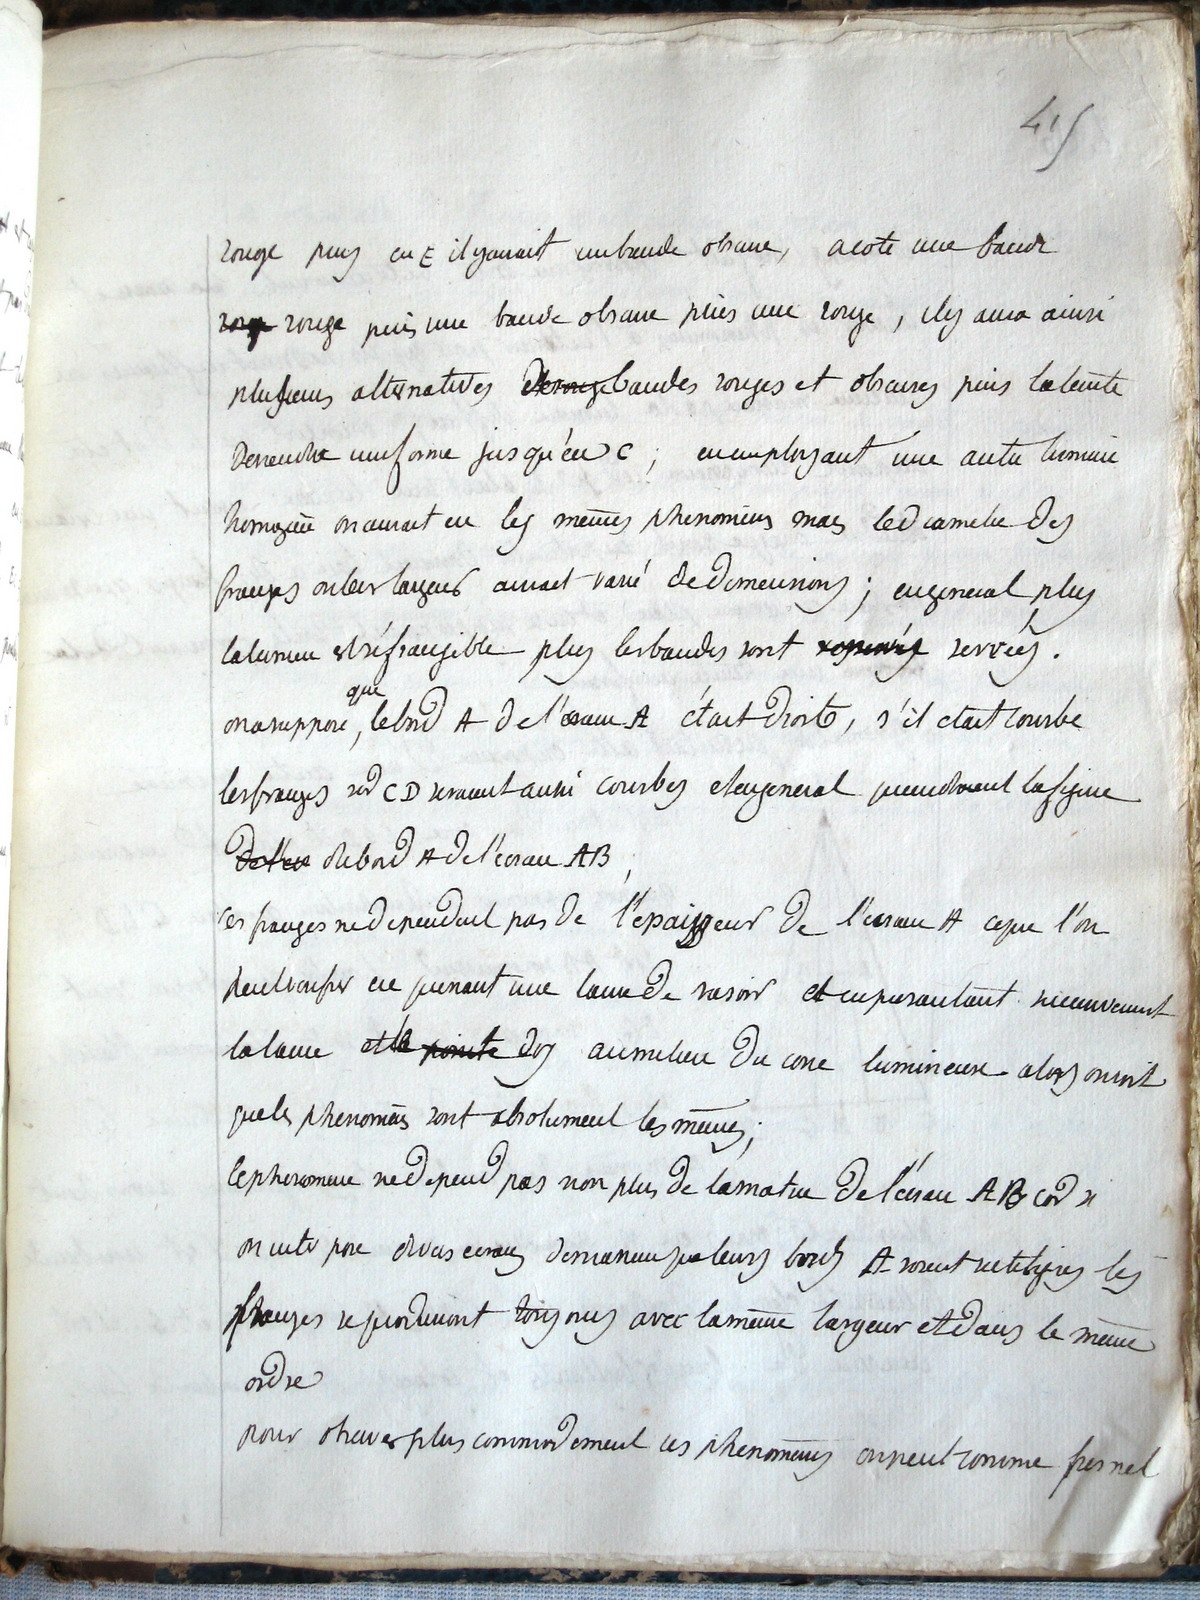 415
rouge puis en E il y aurait un bande obscure, a coté une bande
rouge rouge puis une bande obscure puis une rouge, il y aura ainsi
plusieurs alternatives de rouge bandes rouges et obscures puis la teinte
deviendra uniforme jusqu'en C ; en employant une autre lumiere
homogene on aurait eu les mêmes phenomenes mais le diametre des
franges ou leur largeur aurait varié de dimensions ; en general plus
la lumiere est réfrangible plus les bandes sont serrées.
on a supposé, que le bord A de l'écran A était droite, s'il etait courbe
les franges sur CD seraient aussi courbes et en general prendraient la figure
de l'ec du bord A de l'écran AB,
ces franges ne dependent pas de l'épaisseur de l'écran A ce que l'on
peut verifier en prenant une lame de rasoir et en presentant successivement
la lame et la pointe dos au milieu du cone lumineux alors on voit
que les phenomenes sont absolument les mêmes;
le phenomene ne depend pas non plus de la matiere de l'écran AB car si
on interpose divers ecrans de maniere que leurs bords A soient rectilignes les
franges se produiront toujours avec la même largeur et dans le même
ordre
pour observer plus commodement ces phenomenes on peut comme fresnel